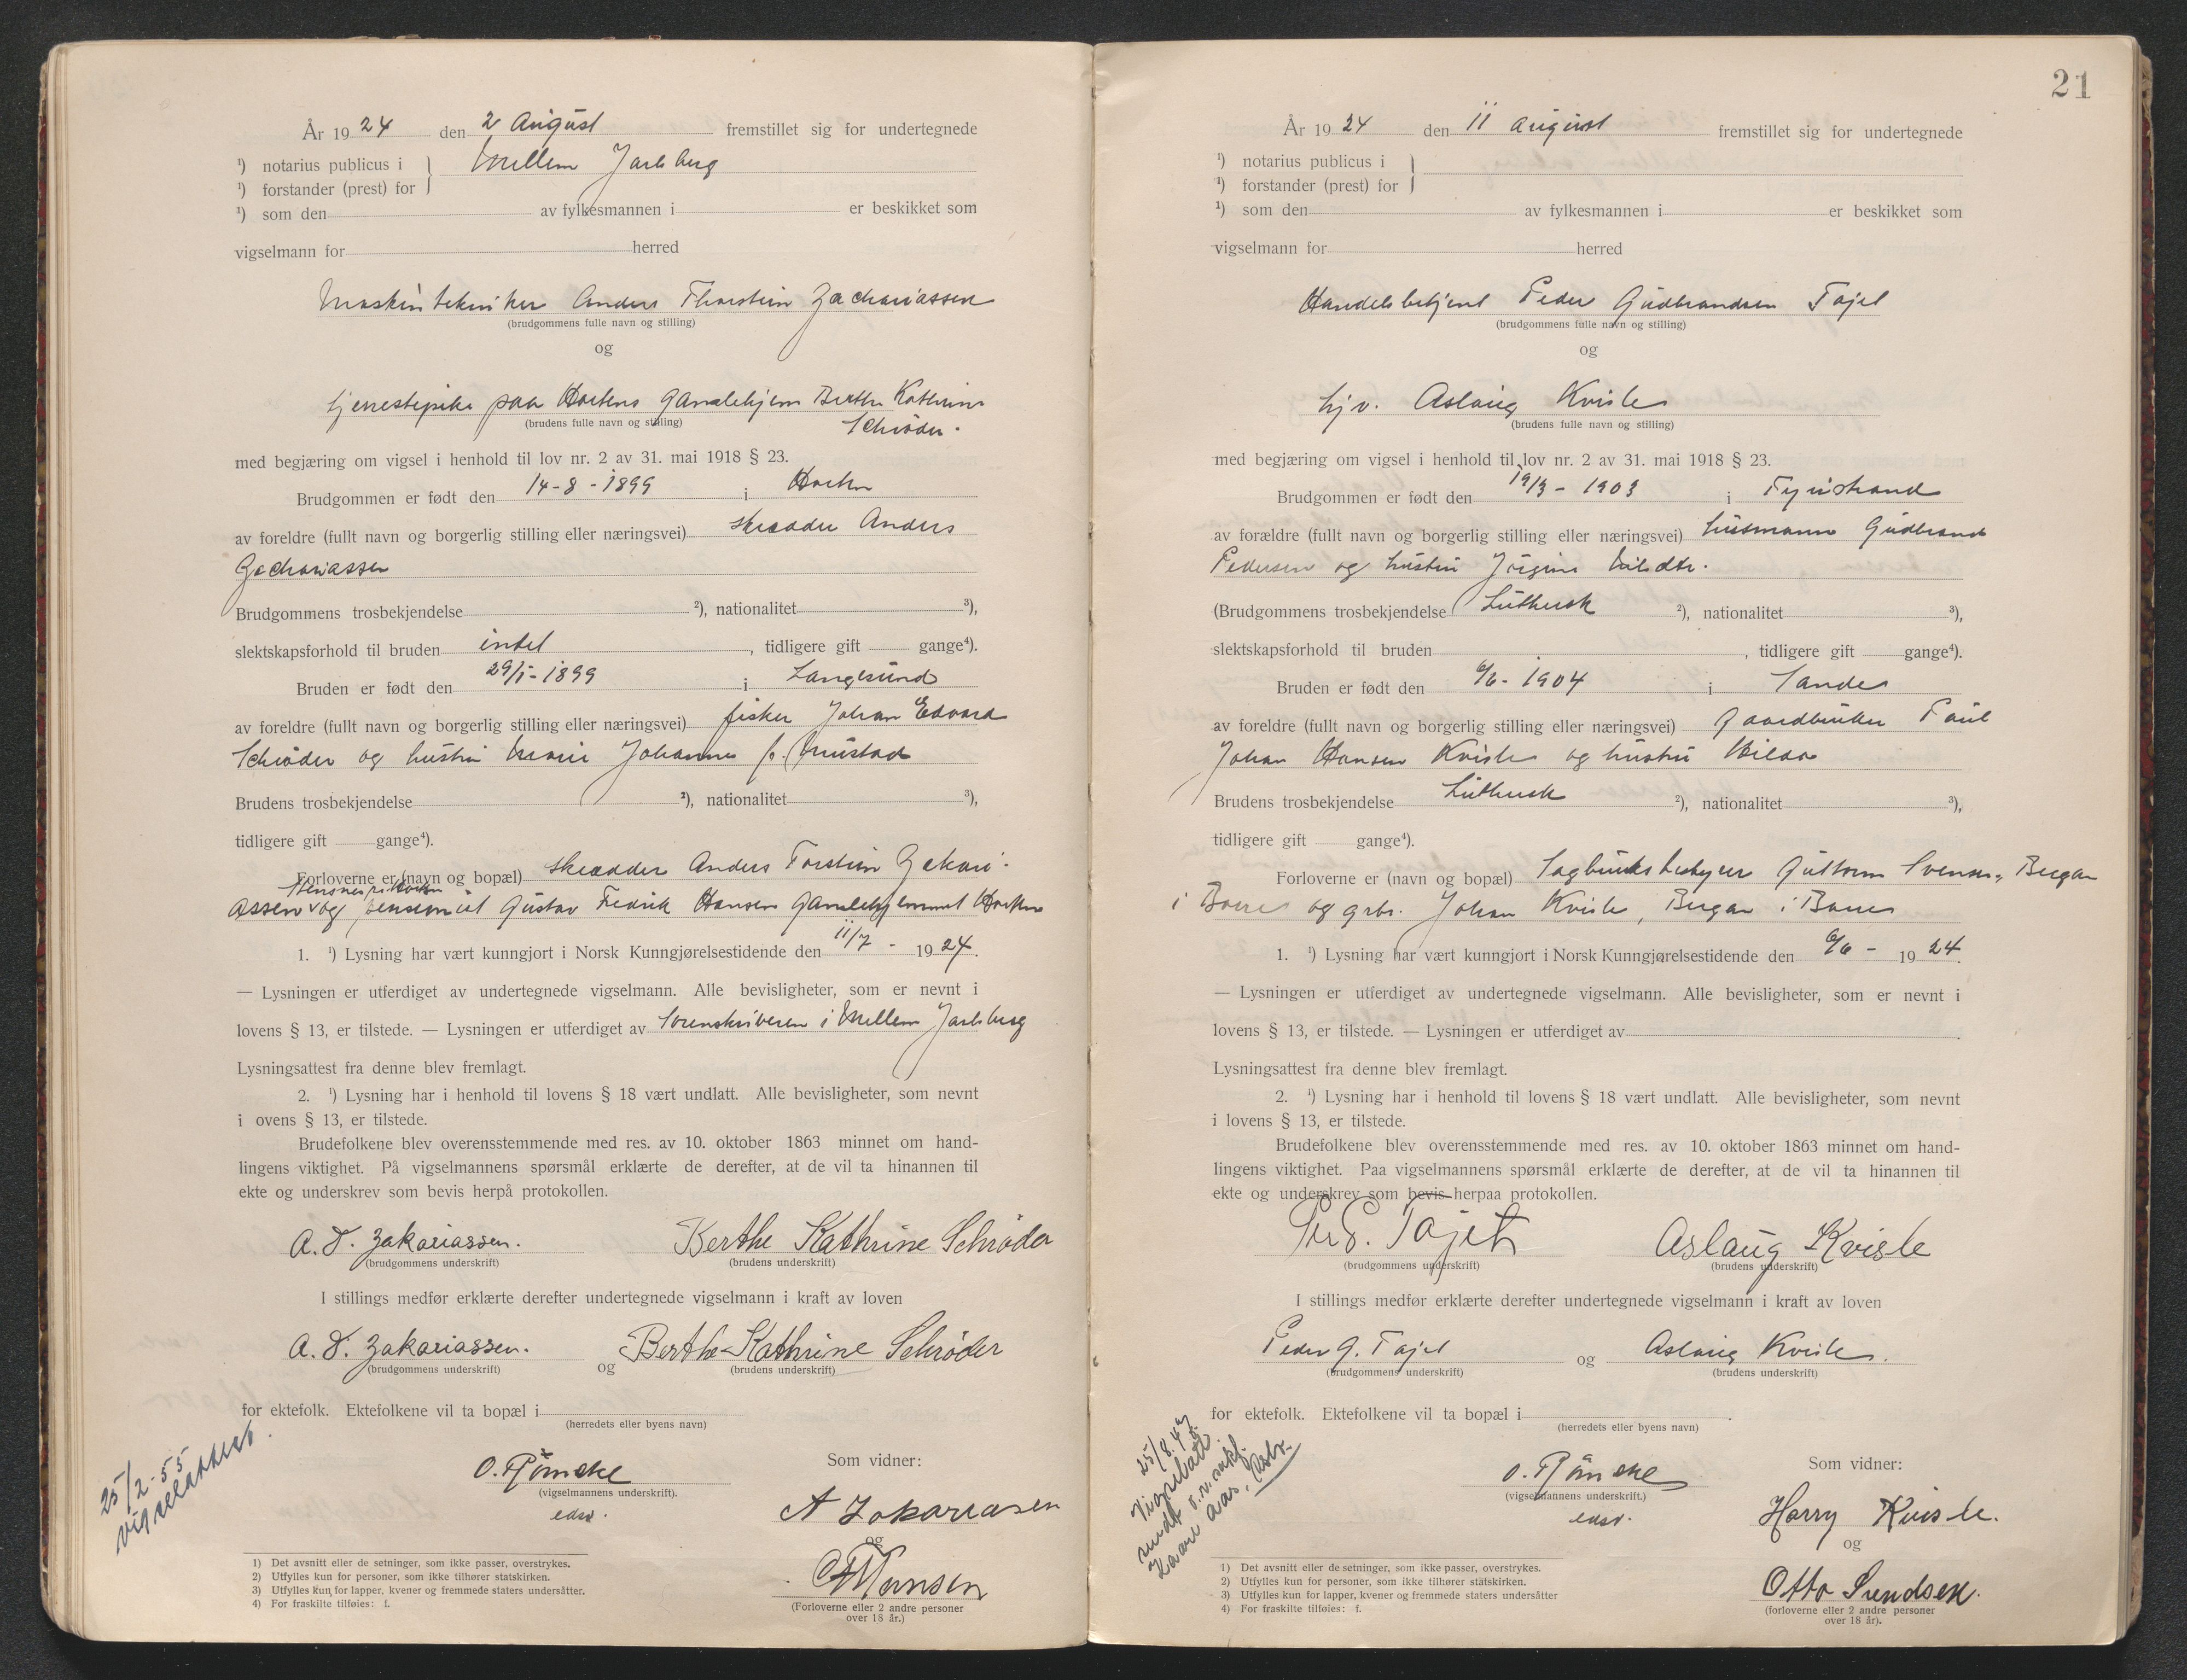 År 1924 den 2 August fremstillet sig for undertegnede
¹) notarius publicus i Mellem Jarlsberg
¹) forstander (prest) for
¹) som den av fylkesmannen i er beskikket som
vigselmann for herred
Maskintekniker Anders Thorstein Zachariassen
(brudgommens fulle navn og stilling)
og
tjenestepike paa Hortens Gamlehjem Berthe Kathrine
(brudens fulle navn og stilling) Schrøder.
med begjæring om vigsel i henhold til lov nr. 2 av 31. mai 1918 § 23.
Brudgommen er født den 14-8-1899 i Horten
av foreldre (fullt navn og borgerlig stilling eller næringsvei) skrædder Anders
Zachariassen
Brudgommens trosbekjendelse ²), nationalitet ³),
slektskapsforhold til bruden intet, tidligere gift gange⁴).
Bruden er født den 29/1-1899 i Langesund
av foreldre (fullt navn og borgerlig stilling eller næringsvei) fisker Johan Edvard
Schrøder og hustru Marie Johanne f. Mustad
Brudens trosbekjendelse ²), nationalitet ³),
tidligere gift gange⁴).
Forloverne er (navn og bopæl) skrædder Anders Torstein Zakari-
assen og pensionist Gustav Fredrik Hansen Gamlehjemmet Horten
1. ¹) Lysning har vært kunngjort i Norsk Kunngjørelsestidende den 11/7 - 1924.
— Lysningen er utferdiget av undertegnede vigselmann. Alle bevisligheter, som er nevnt i
lovens § 13, er tilstede. — Lysningen er utferdiget av Sorenskriveren i Mellem Jarlsberg
Lysningsattest fra denne blev fremlagt.
2. ¹) Lysning har i henhold til lovens § 18 vært undlatt. Alle bevisligheter, som nevnt
i ovens § 13, er tilstede.
Brudefolkene blev overensstemmende med res. av 10. oktober 1863 minnet om hand-
lingens viktighet. På vigselmannens spørsmål erklærte de derefter, at de vil ta hinannen til
ekte og underskrev som bevis herpå protokollen.
A. T. Zakariassen. Berthe Kathrine Schrøder
(brudgommens underskrift) (brudens underskrift)
I stillings medfør erklærte derefter undertegnede vigselmann i kraft av loven
A. T. Zakariassen. og Berthe Kathrine Schrøder
(brudgommens underskrift) (brudens underskrift)
for ektefolk. Ektefolkene vil ta bopæl i
(herredets eller byens navn)
25/2-55
vigselattest.
Som vidner:
(vigselmannens underskrift).
edsv.
A Zakariassen
og
G F Hansen
(Forloverne eller 2 andre personer
over 18 år.)
1) Det avsnitt eller de setninger, som ikke passer, overstrykes.
2) Utfylles kun for personer, som ikke tilhører statskirken.
3) Utfylles kun for lapper, kvener og fremmede staters undersåtter.
4) For fraskilte tilføies: f.
21
År 1924 den 11 august fremstillet sig for undertegnede
¹) notarius publicus i
¹) forstander (prest) for
¹) som den av fylkesmannen i er beskikket som
vigselmann for herred
Handelsbetjent Peder Gudbrandsen Tajet
(brudgommens fulle navn og stilling)
og
hjv. Aslaug Kvisle
(brudens fulle navn og stilling)
med begjæring om vigsel i henhold til lov nr. 2 av 31. mai 1918 § 23.
Brudgommen er født den 19/3 - 1903 i Tyristrand
av forældre (fullt navn og borgerlig stilling eller næringsvei) husmann Gudbrand
Pedersen og hustru Jørgine
(Brudgommens trosbekjendelse Luthersk ²), nationalitet ³),
slektskapsforhold til bruden, tidligere gift gange⁴).
Bruden er født den 6/6 - 1904 i Sande
av foreldre (fullt navn og borgerlig stilling eller næringsvei) gaardbruker Paul
Johan Hansen Kvisle og hustru Hilda
Brudens trosbekjendelse Luthersk ²), nationalitet ³),
tidligere gift gange⁴).
Forloverne er (navn og bopæl) Sagbruksbestyrer Guttorm Svensen, Bergan
i Borre og grbr. Johan Kvisle, Bergan i Borre
1. ¹) Lysning har vært kunngjort i Norsk Kunngjørelsestidende den 6/6 - 1924.
— Lysningen er utferdiget av undertegnede vigselmann. Alle bevisligheter, som er nevnt i
lovens § 13, er tilstede. — Lysningen er utferdiget av
Lysningsattest fra denne blev fremlagt.
2. ¹) Lysning har i henhold til lovens § 18 vært undlatt. Alle bevisligheter, som nevnt
i lovens § 13, er tilstede.
Brudefolkene blev overensstemmende med res. av 10. oktober 1863 minnet om hand-
lingens viktighet. Paa vigselmannens spørsmål erklærte de derefter, at de vil ta hinannen til
ekte og underskrev som bevis herpaa protokollen.
Tajet Aslaug Kvisle
(brudgommens underskrift) (brudens underskrift)
I stillings medfør erklærte derefter undertegnede vigselmann i kraft av loven
Peder G. Tajet og Aslaug Kvisle.
(brudgommens underskrift) (brudens underskrift)
for ektefolk. Ektefolkene vil ta bopæl i
(herredets eller byens navn)
25/8.47
Vigselatt.
sendt o.r.sakf.
Kaare Aas,
Som vidner:
(vigselmannens underskrift.)
edsv.
Harry Kvisle.
og
Otto Svendsen.
(forloverne eller 2 andre personer
over 18 år).
1) Det avsnitt eller de setninger, som ikke passer, overstrykes.
2) Utfylles kun for personer, som ikke tilhører statskirken.
3) Utfylles kun for lapper, kvener og fremmede staters undersåtter
4) For fraskilte tilføies: f.